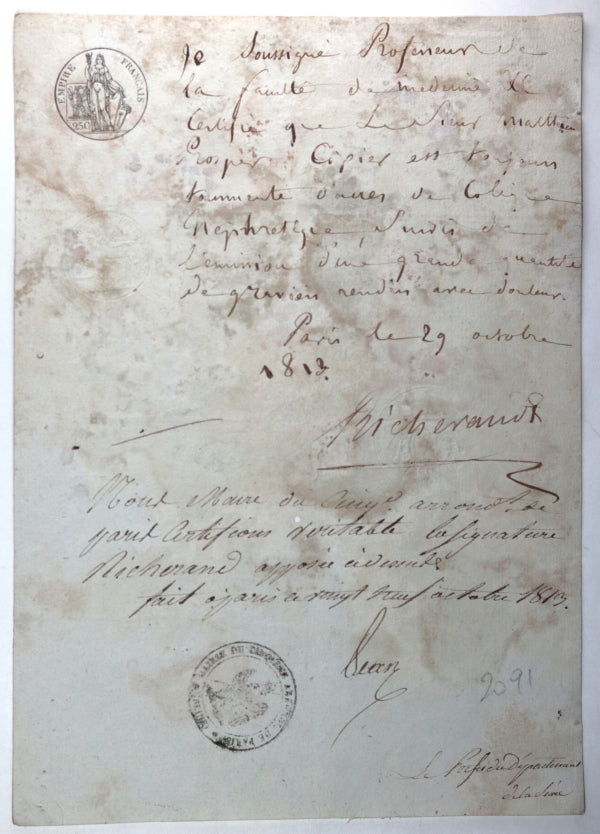 EMPIRE FRANÇAIS
25C
Je Soussigné Professeur de
la faculté de medecine &C
Certifie que Le Sieur Matthieu
Prosper Cipier est toujours
tourmenté de Colique
Nephretique Suivis de
L'emission d'une grande quantité
de graviers rendus avec douleur.
Paris le 29 octobre
1813.
Richerand
Nous Maire du Cinqe. arrondt. de
paris Certifions veritable la signature
Richerand apposée cidessus
fait a paris ce vingt neuf octobre 1813.
MAIRIE DU CINQUIEME ARRONDT. DE PARIS
2091
Le Prefet du Département
de la Seine